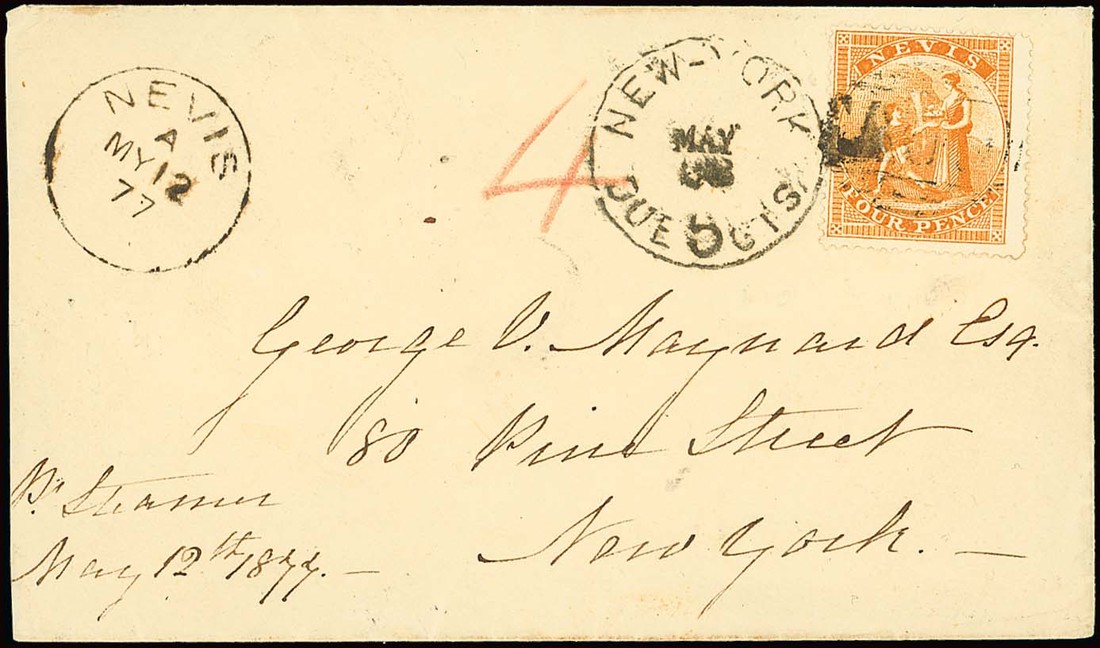 NEVIS
A
MY 12
77
4
NEW-YORK
MAY
DUE 5 CTS
NEVIS
FOUR PENCE
George V. Maynard Esq.
80 Pine Street
New York. —
Pr Steamer
May 12th 1877. —